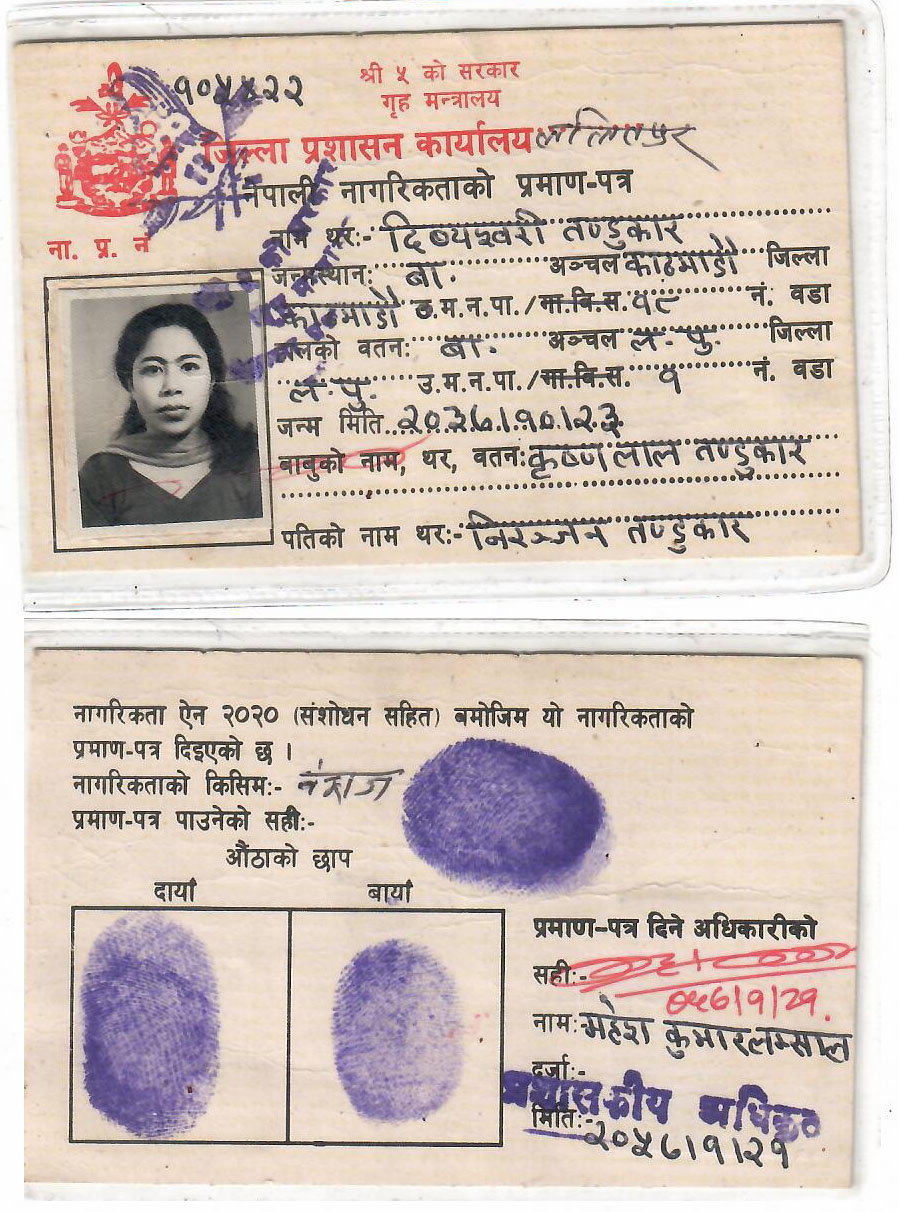 १०५४२२
श्री ५ को सरकार
गृह मन्त्रालय
जिल्ला प्रशासन कार्यालय ललितपुर
नेपाली नागरिकताको प्रमाण-पत्र
ना. प्र. नं
नाम थर:- दिव्यश्वरी तण्डुकार
जन्मस्थान: बा. अञ्चल काठमाडौं जिल्ला
काठमाडौं म.न.पा./गा.वि.स. १९ नं. वडा
बा. अञ्चल ल.पु. जिल्ला
ल.पु. उ.म.न.पा./गा.वि.स. १ नं. वडा
जन्म मिति २०३६।१०।२३
बाबुको नाम, थर, वतन: कृष्ण लाल तण्डुकार
पतिको नाम थर:- निरञ्जन तण्डुकार
नागरिकता ऐन २०२० (संशोधन सहित) बमोजिम यो नागरिकताको
प्रमाण-पत्र दिइएको छ ।
नागरिकताको किसिम:- वंशज
प्रमाण-पत्र पाउनेको सही:-
औंठाको छाप
दायाँ बायाँ
प्रमाण-पत्र दिने अधिकारीको
सही:-
नाम: महेश कुमार लम्साल
दर्जा:-
प्रशासकीय अधिकृत
मिति:- २०५६।९।२१